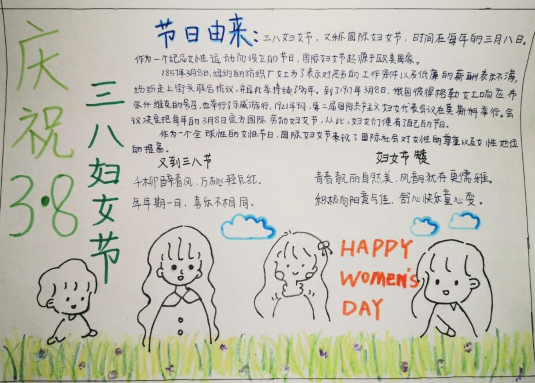 庆祝3·8
三八妇女节
节日由来:三八妇女节,又称国际妇女节,时间在每年的三月八日。
作为一个纪念女性运动而设立的节日,国际妇女节起源于欧美国家。
1857年3月8日,纽约的纺织厂女工为了表示对完当的工作条件以及低廉的薪酬表示不满,
纷纷走上街头示威抗议,
到了1917年3月8日,俄国俄得格勒女工响应布
尔什维克的号召,也举行了示威游行,1921年9月,第二届国际共产主义妇女代表会议在莫斯科举行。会
议决定把每年的3·8定为国际劳动妇女节,从此,妇女们便有了自己的节日。
作为一个全球性的女性节日,国际妇女节表议了国际社会对女性的尊重以及女性地位
的提高。
又到三八节
千柳醉春风,万杏轻点红。
年年期一日,喜乐不相同。
妇女节
青春靓丽自然美,风韵犹存更儒雅。
积极向阳意与佳,舒心快乐童心耍。
HAPPY
WOMEN'S
DAY